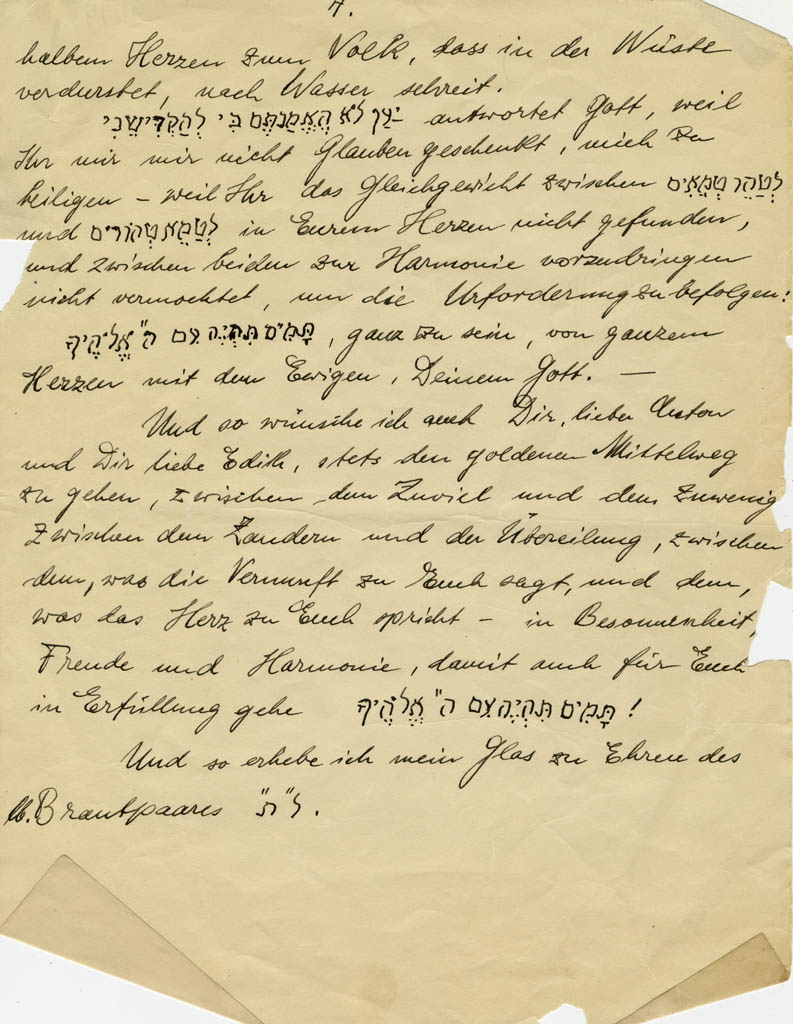 4.
halbem Herzen zum Volk, dass in der Wüste
verdurstet, nach Wasser schreit.
יַעַן לֹא הֶאֱמַנְתֶּם בִּי לְהַקְדִּישֵׁנִי antwortet Gott, weil
Ihr mir mir nicht Glauben geschenkt, mich zu
heiligen – weil Ihr das Gleichgewicht zwischen לְטַהֵר טְמֵאִים
und לְטַמֵּא טְהוֹרִים in Eurem Herzen nicht gefunden,
und zwischen beiden zur Harmonie vorzudringen
nicht vermochtet, um die Urforderung zu befolgen:
תָּמִים תִּהְיֶה עִם ה" אֱלֹהֶיךָ, ganz zu sein, von ganzem
Herzen mit dem Ewigen, Deinem Gott. —
Und so wünsche ich auch Dir, lieber Anton
und Dir liebe Edith, stets den goldenen Mittelweg
zu gehen, zwischen dem Zuviel und dem Zuwenig
zwischen dem Zaudern und der Übereilung, zwischen
dem, was die Vernunft zu Euch sagt, und dem,
was das Herz zu Euch spricht – in Besonnenheit,
Freude und Harmonie, damit auch für Euch
in Erfüllung gehe תָּמִים תִּהְיֶה עִם ה" אֱלֹהֶיךָ!
Und so erhebe ich mein Glas zu Ehren des
lb. Brautpaares